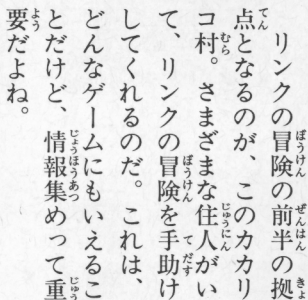 リンクの冒険の前半の拠
点となるのが、このカカリ
コ村。さまざまな住人がい
て、リンクの冒険を手助け
してくれるのだ。これは、
どんなゲームにもいえるこ
とだけど、情報集めって重
要だよね。